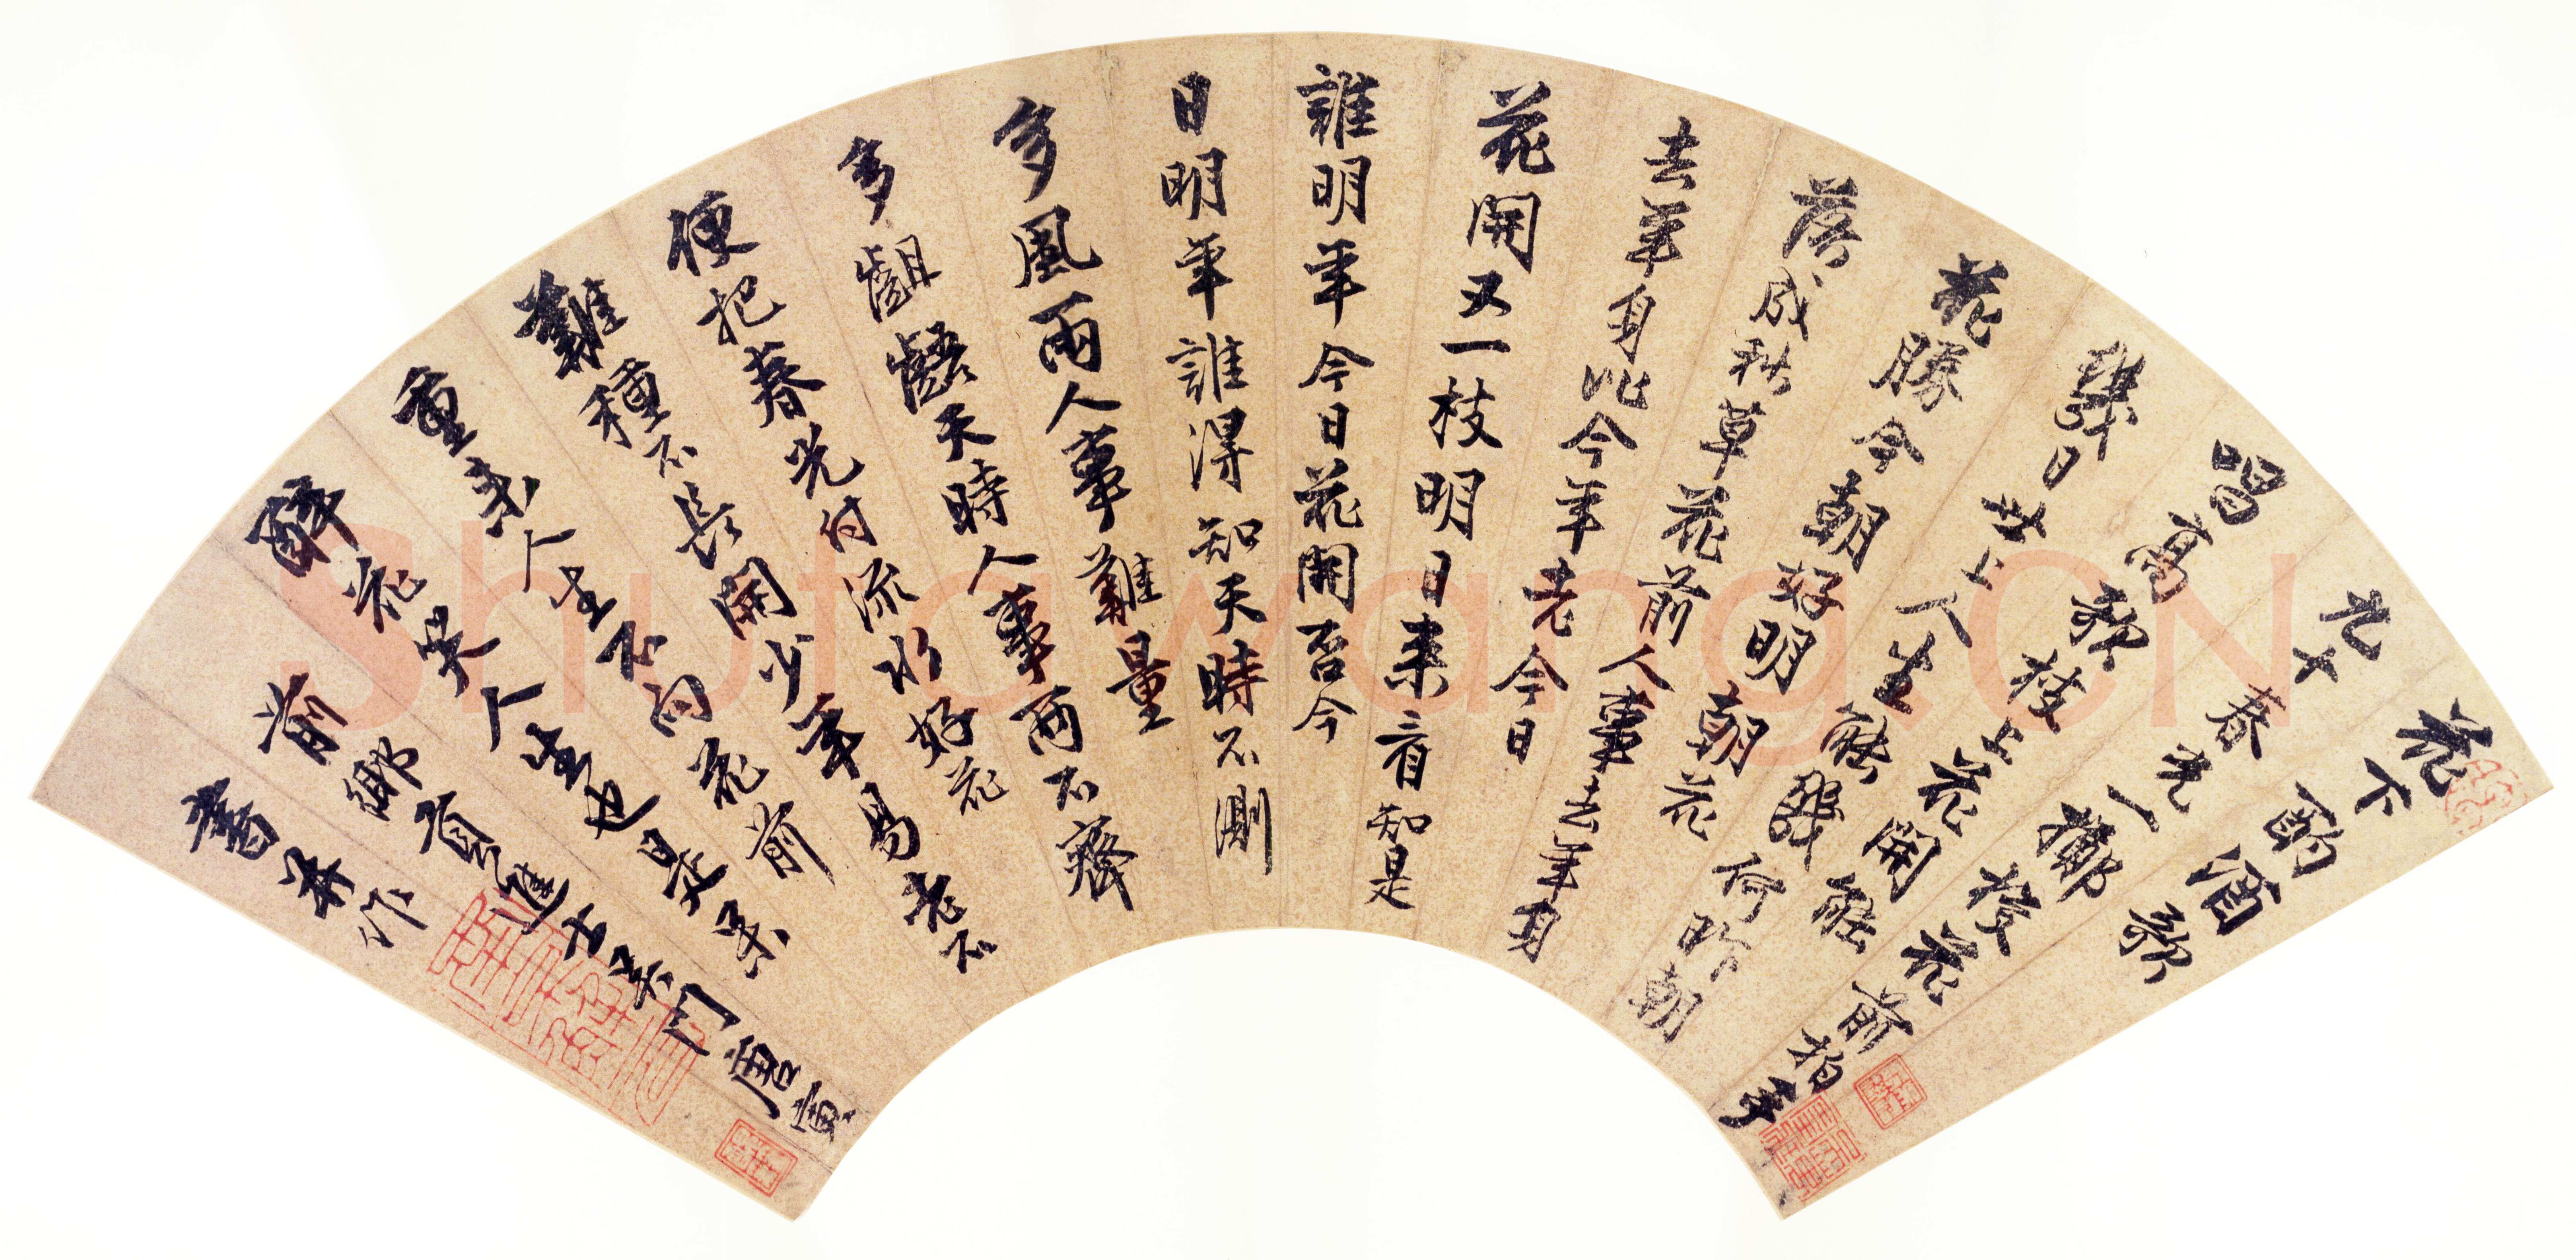 花下酌酒歌
九十春光一擲梭花前拍手
唱高歌枝上花開能
幾日世上人生能幾何昨朝
花勝今朝好明朝花
落成秋草花前人事去年身
去年身比今年老今日
花開又一枝明日來看知是
誰明年今日花開否今
日明年誰得知天時不測
多風雨人事難量
多齟齬天時人事兩不齊
便把春光付流水好花
難種不長開少年易老不
重來人生不向花前
醉花笑人生也是呆
前鄉貢進士吳門唐寅
書并作
Shufawang.CN